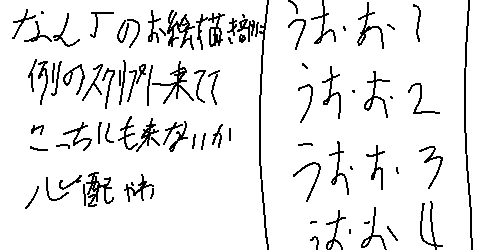 なんJのお絵描き部に
例のスクリプト来てて
こっちにも来ないか
心配やわ
うお・お・1
うお・お・2
うおお・3
うおお・4